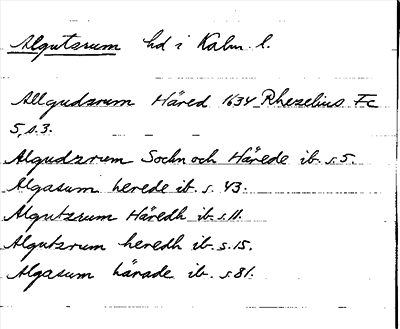 Algutsrum hd i Kalm. l.
Allgudsrum Häred 1634 Rhezelius Fc
5, s. 3.
Algudzrum Sochn och Härede ib. s. 5.
Algasum herede ib. s. 43.
Algutzrum Häredh ib. s. 11.
Algutzrum heredh ib. s. 15.
Algasum härade ib. s. 81.